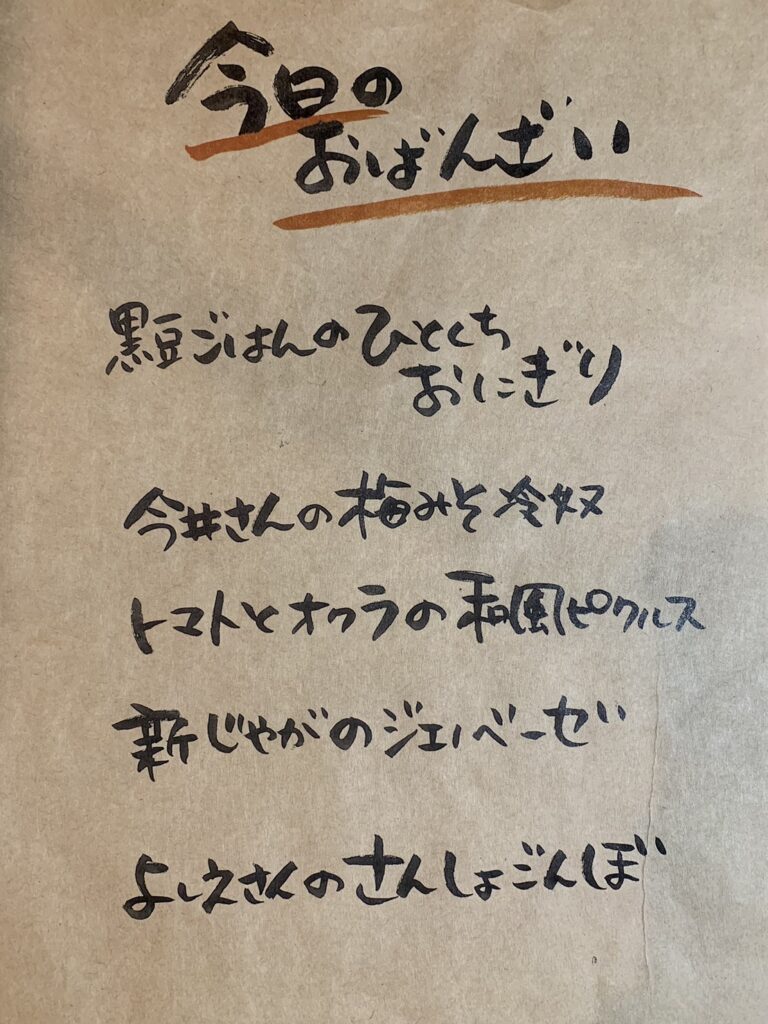 今日の
おばんざい
黒豆ごはんのひとくち
おにぎり
今井さんの梅みそ冷奴
トマトとオクラの和風ピクルス
新じゃがのジェノベーゼ
よしヱさんのさんしょごんぼ